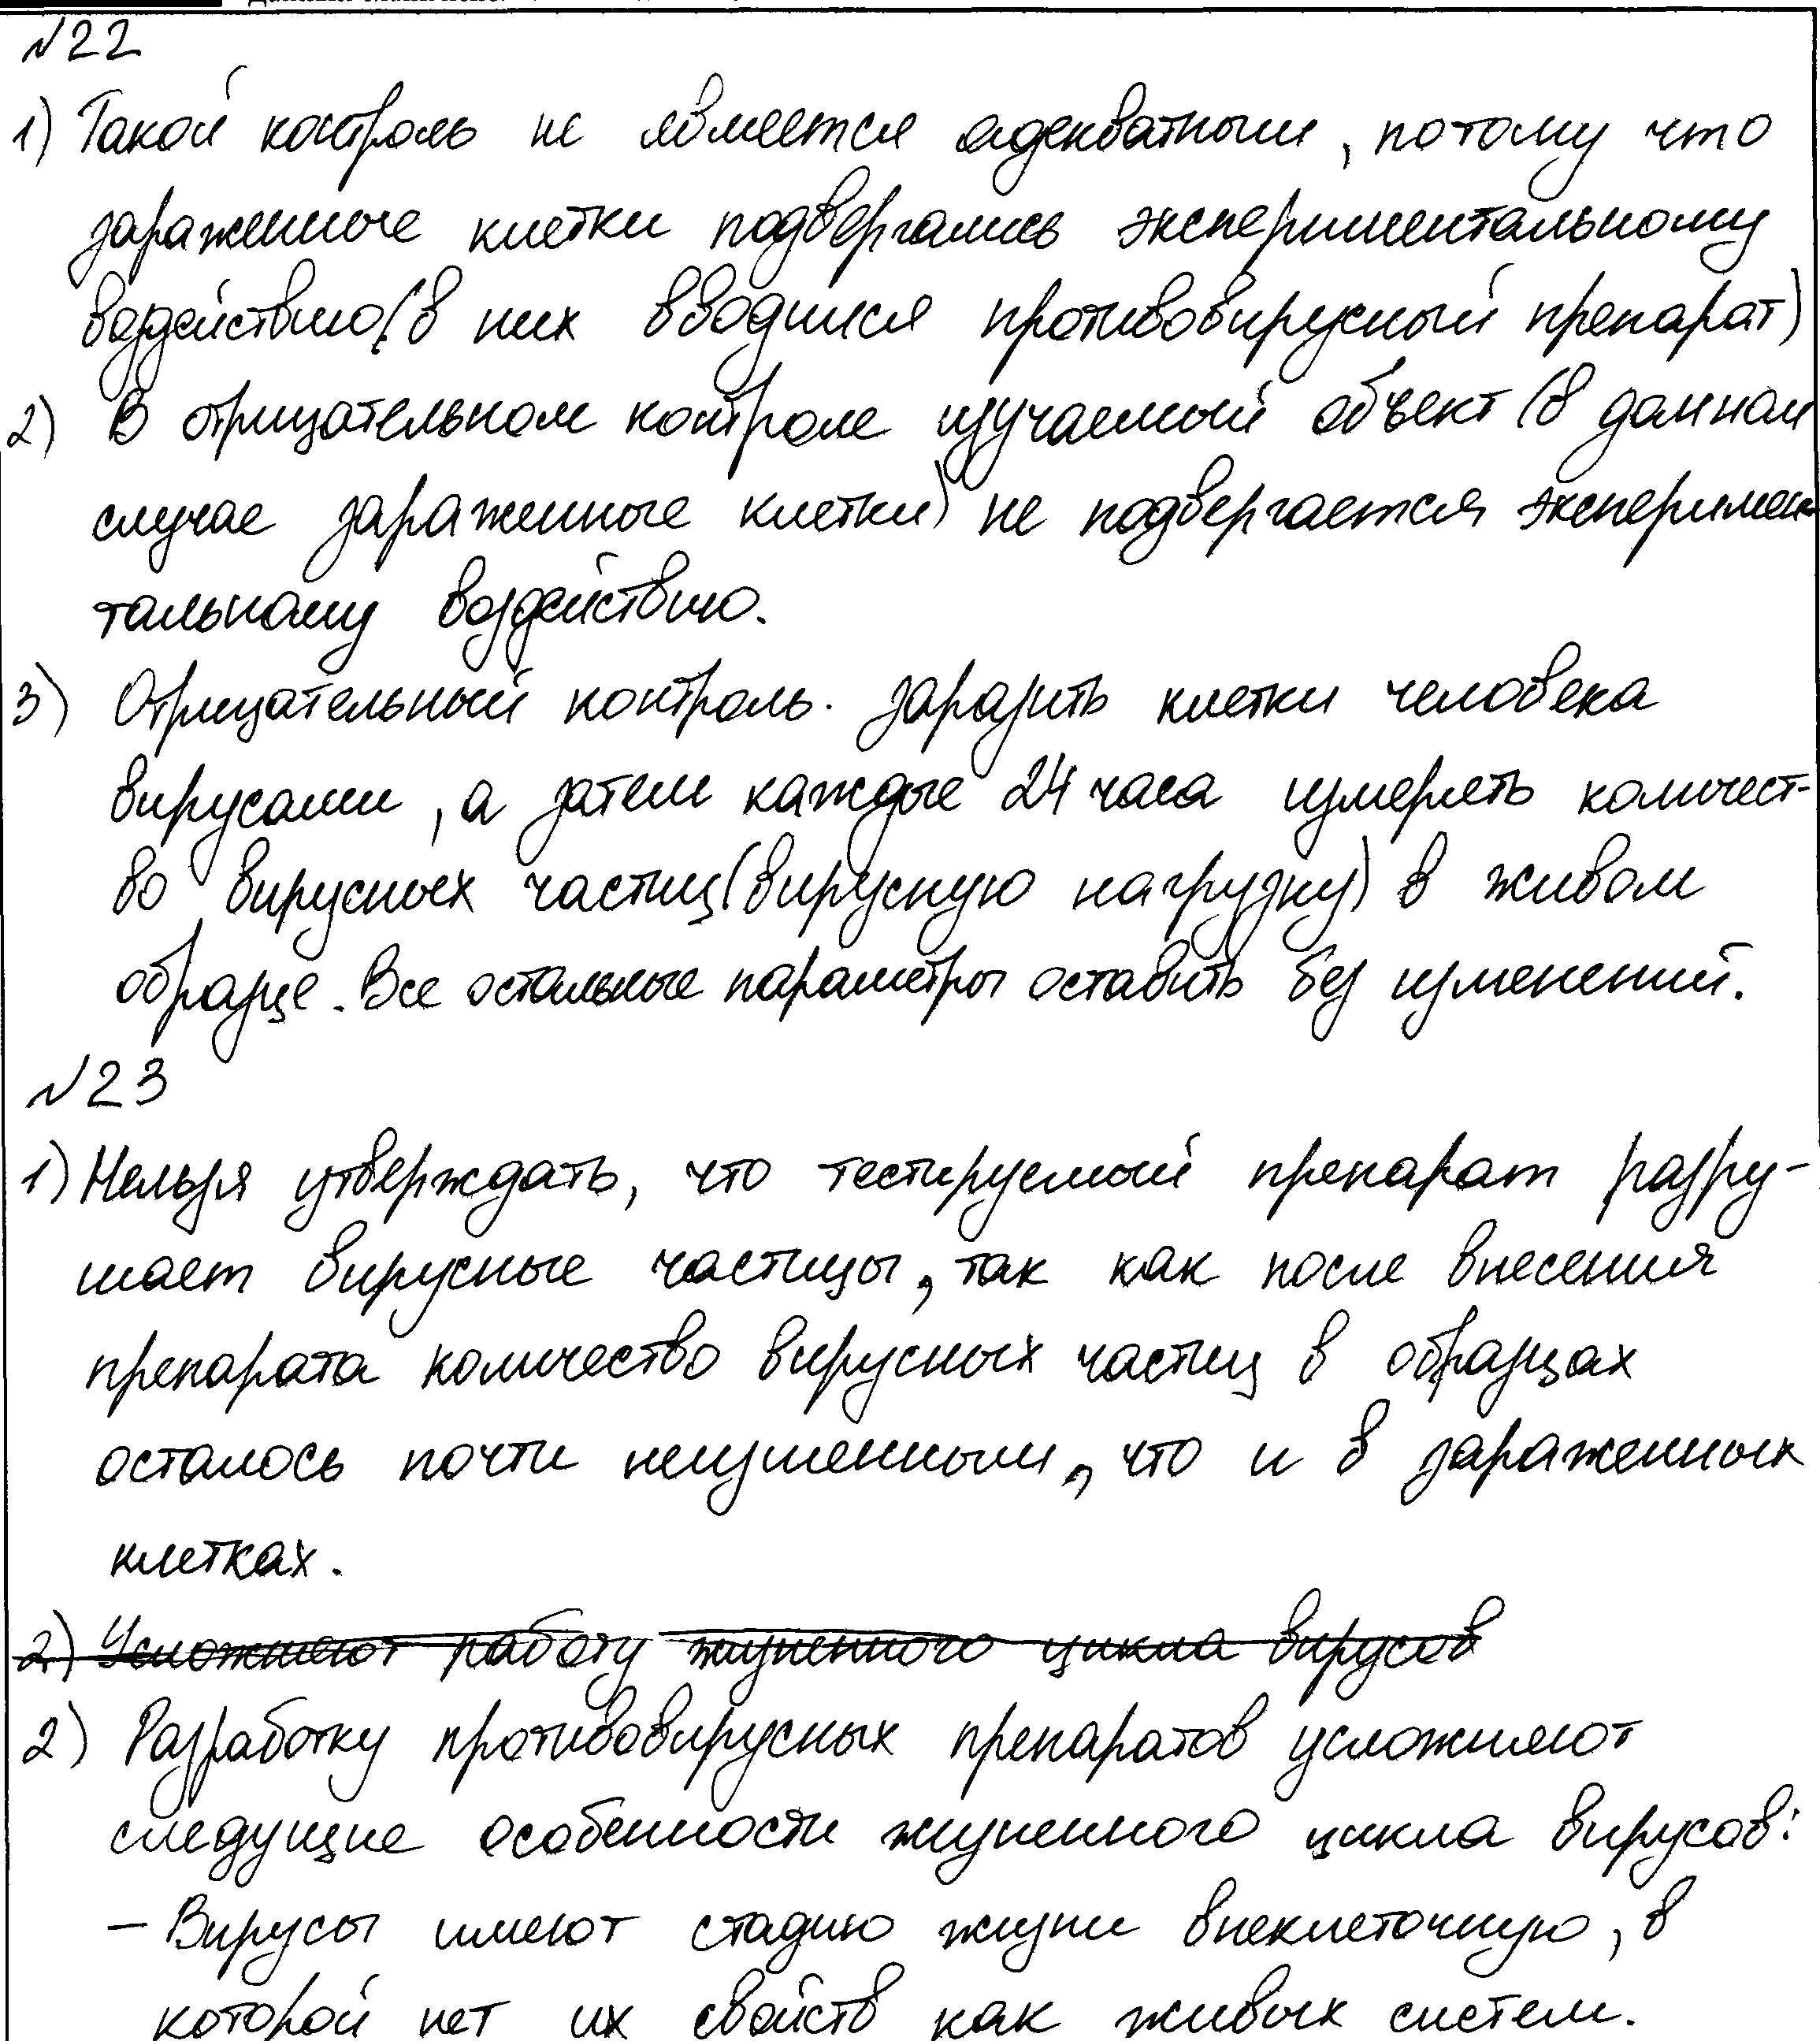 №22
1) Такой контроль не является адекватным, потому что
зараженные клетки подвергались экспериментальному
воздействию (в них вводился противовирусный препарат)
2) В отрицательном контроле изучаемый объект (в данном
случае зараженные клетки) не подвергается эксперимен-
тальному воздействию.
3) Отрицательный контроль. заразить клетки человека
вирусами, а затем каждые 24 часа измерять количест-
во вирусных частиц (вирусную нагрузку) в живом
образце. Все остальные параметры оставить без изменений.
№23
1) Нельзя утверждать, что тестируемый препарат разру-
шает вирусные частицы, так как после внесения
препарата количество вирусных частиц в образцах
осталось почти неизменным, что и в зараженных
клетках.
2) Усложняют работу жизненного цикла вирусов
2) Разработку противовирусных препаратов усложняют
следующие особенности жизненного цикла вирусов:
- Вирусы имеют стадию жизни внеклеточную, в
которой нет их свойств как живых систем.